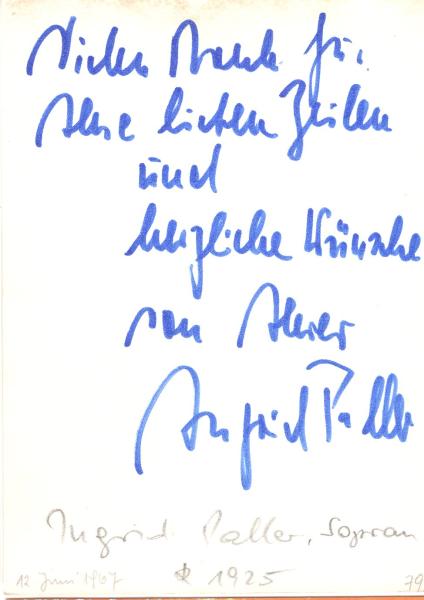 Vielen Dank für
Ihre lieben Zeilen
und
herzliche Wünsche
von Ihrer
Ingrid Paller
Ingrid Paller, Sopran
12 Juni 1967 * 1925 79